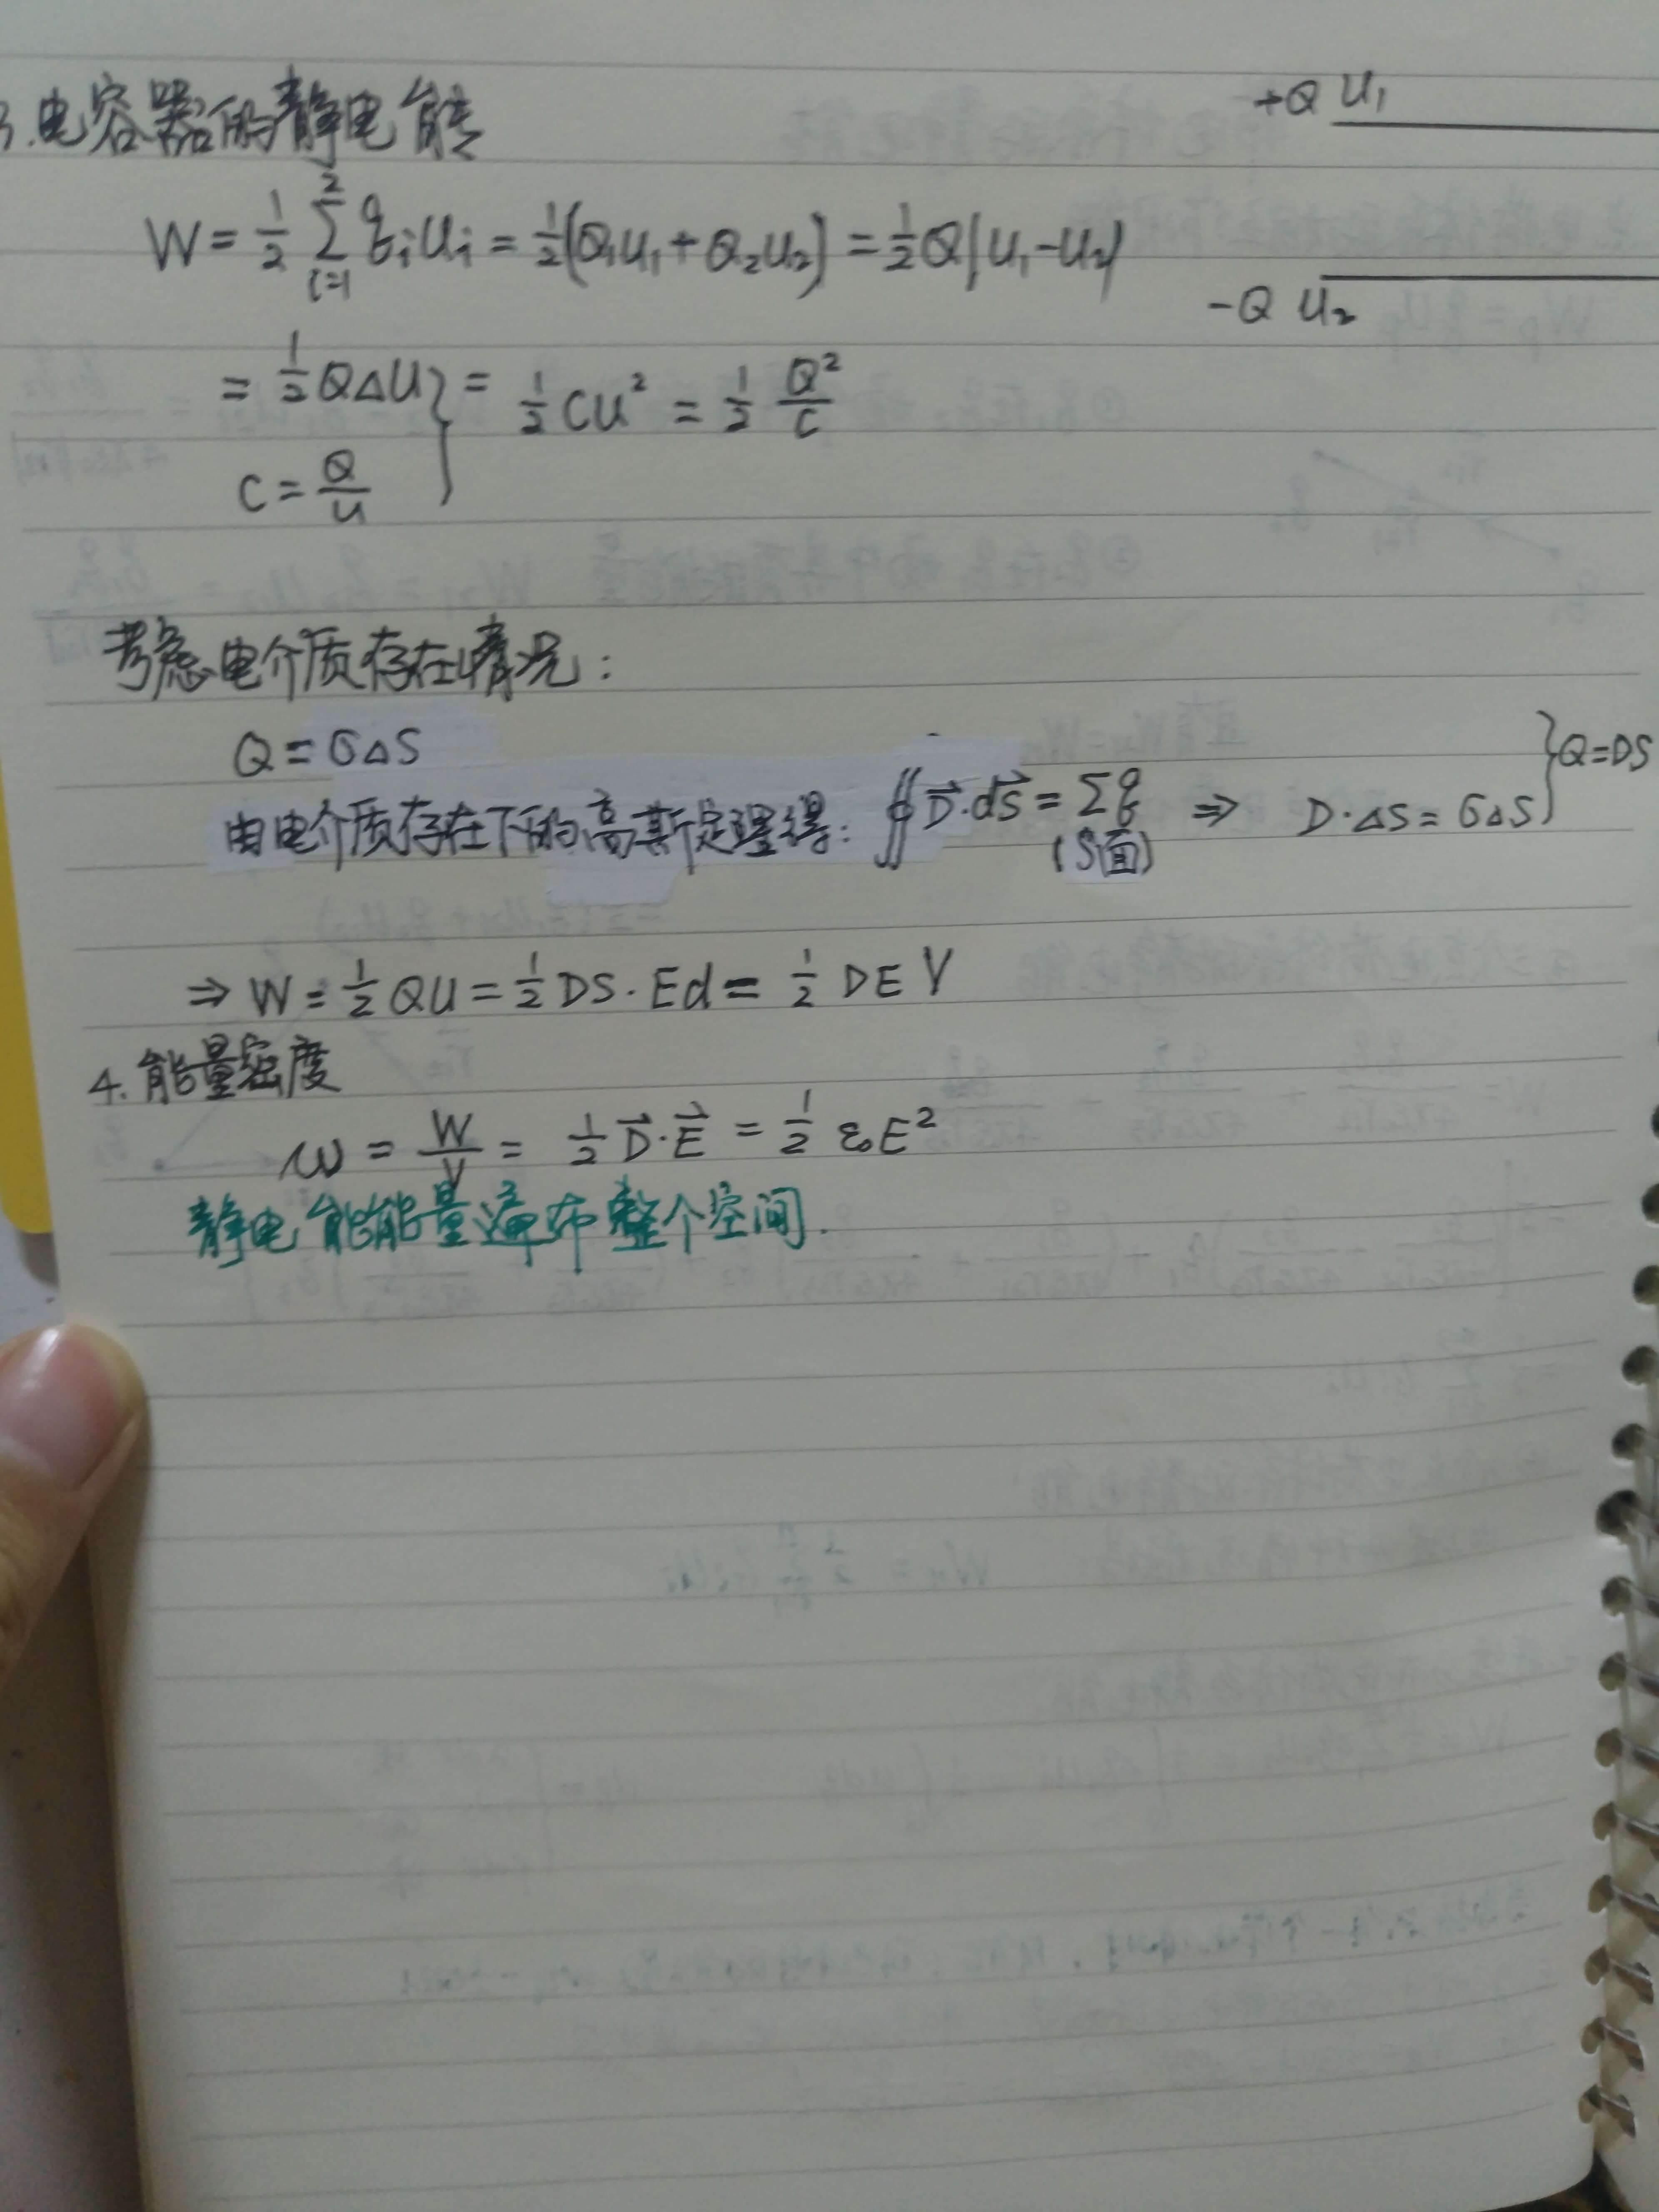 3.电容器的静电能
+Q U₁
W = 1/2 Σ_{i=1}^{2} qᵢUᵢ = 1/2(Q₁U₁+Q₂U₂) = 1/2 Q(U₁-U₂)
-Q U₂
= 1/2 QΔU } = 1/2 CU² = 1/2 Q²/C
C = Q/U
考虑电介质存在情况:
Q = σΔS
由电介质存在下的高斯定理得: ∯ D⃗·dS⃗ = Σq (S面) ⇒ D·ΔS = σΔS } Q=DS
⇒ W = 1/2 QU = 1/2 DS·Ed = 1/2 DEV
4.能量密度
w = W/V = 1/2 D⃗·E⃗ = 1/2 ε₀E²
静电能能量遍布整个空间.